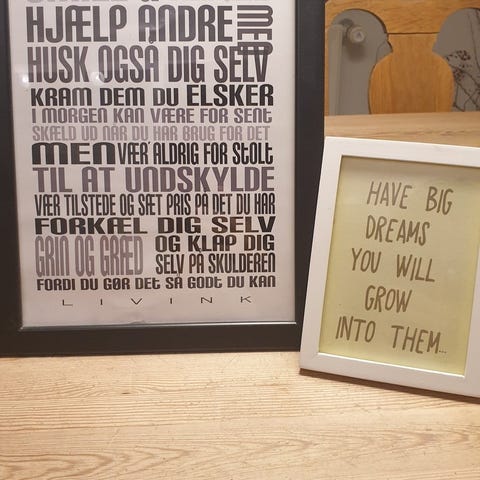 HJÆLP ANDRE MED
HUSK OGSÅ DIG SELV
KRAM DEM DU ELSKER
I MORGEN KAN VÆRE FOR SENT
SKÆLD UD NÅR DU HAR BRUG FOR DET
MEN VÆR' ALDRIG FOR STOLT
TIL AT UNDSKYLDE
VÆR TILSTEDE OG SÆT PRIS PÅ DET DU HAR
FORKÆL DIG SELV
GRIN OG GRÆD OG KLAP DIG
SELV PÅ SKULDEREN
FORDI DU GØR DET SÅ GODT DU KAN
LIVINK
HAVE BIG
DREAMS
YOU WILL
GROW
INTO THEM...